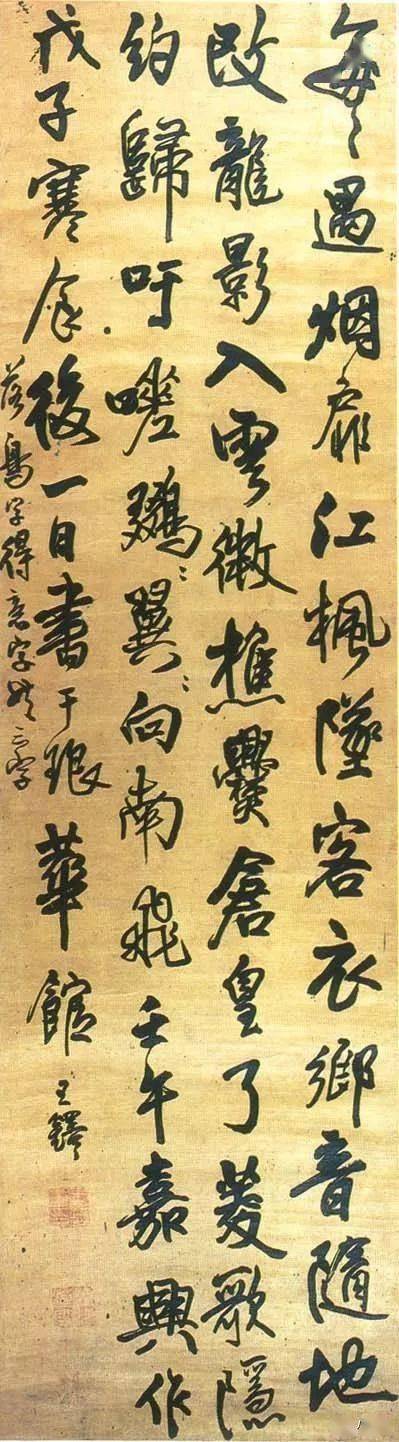 每〻遇烟扉江楓墜客衣鄉音隨地
改龍影入雲微樵爨倉皇了菱歌隱
約歸吁嗟〻翼〻向南飛壬午嘉興作
戊子寒食後一日書于琅華館王鐸
落鳥字得意字共三字